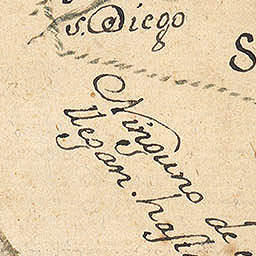 s. Diego
S
Ninguno de
llegan. hast